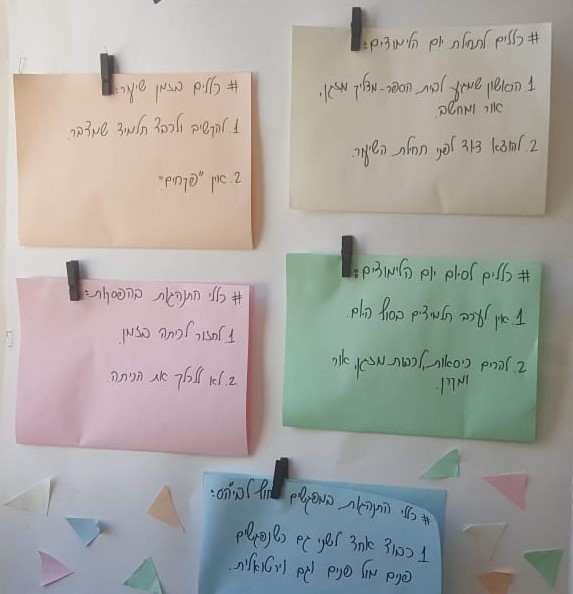 # כללים לתחילת יום הלימודים:
1 הראשון שמגיע לבית הספר-מדליק מזגן,
אור ומחשב.
2. להוציא ציוד לפני תחילת השיעור.
# כללים בזמן שיעור:
1 להקשיב ולכבד תלמיד שמדבר.
2. אין "פקחים"
# כללים לסיום יום הלימודים:
1. אין לעכב תלמידים בסוף היום.
2. להרים כיסאות, לכבות מזגן, אור
ומקרן.
# כללי התנהגות בהפסקות:
1 לחזור לכיתה בזמן.
2. לא ללכלך את הכיתה.
# כללי התנהגות במפגשים חוץ לביה"ס:
1 כבוד אחד לשני גם כשנפגשים
פנים מול פנים וגם וירטואלית.